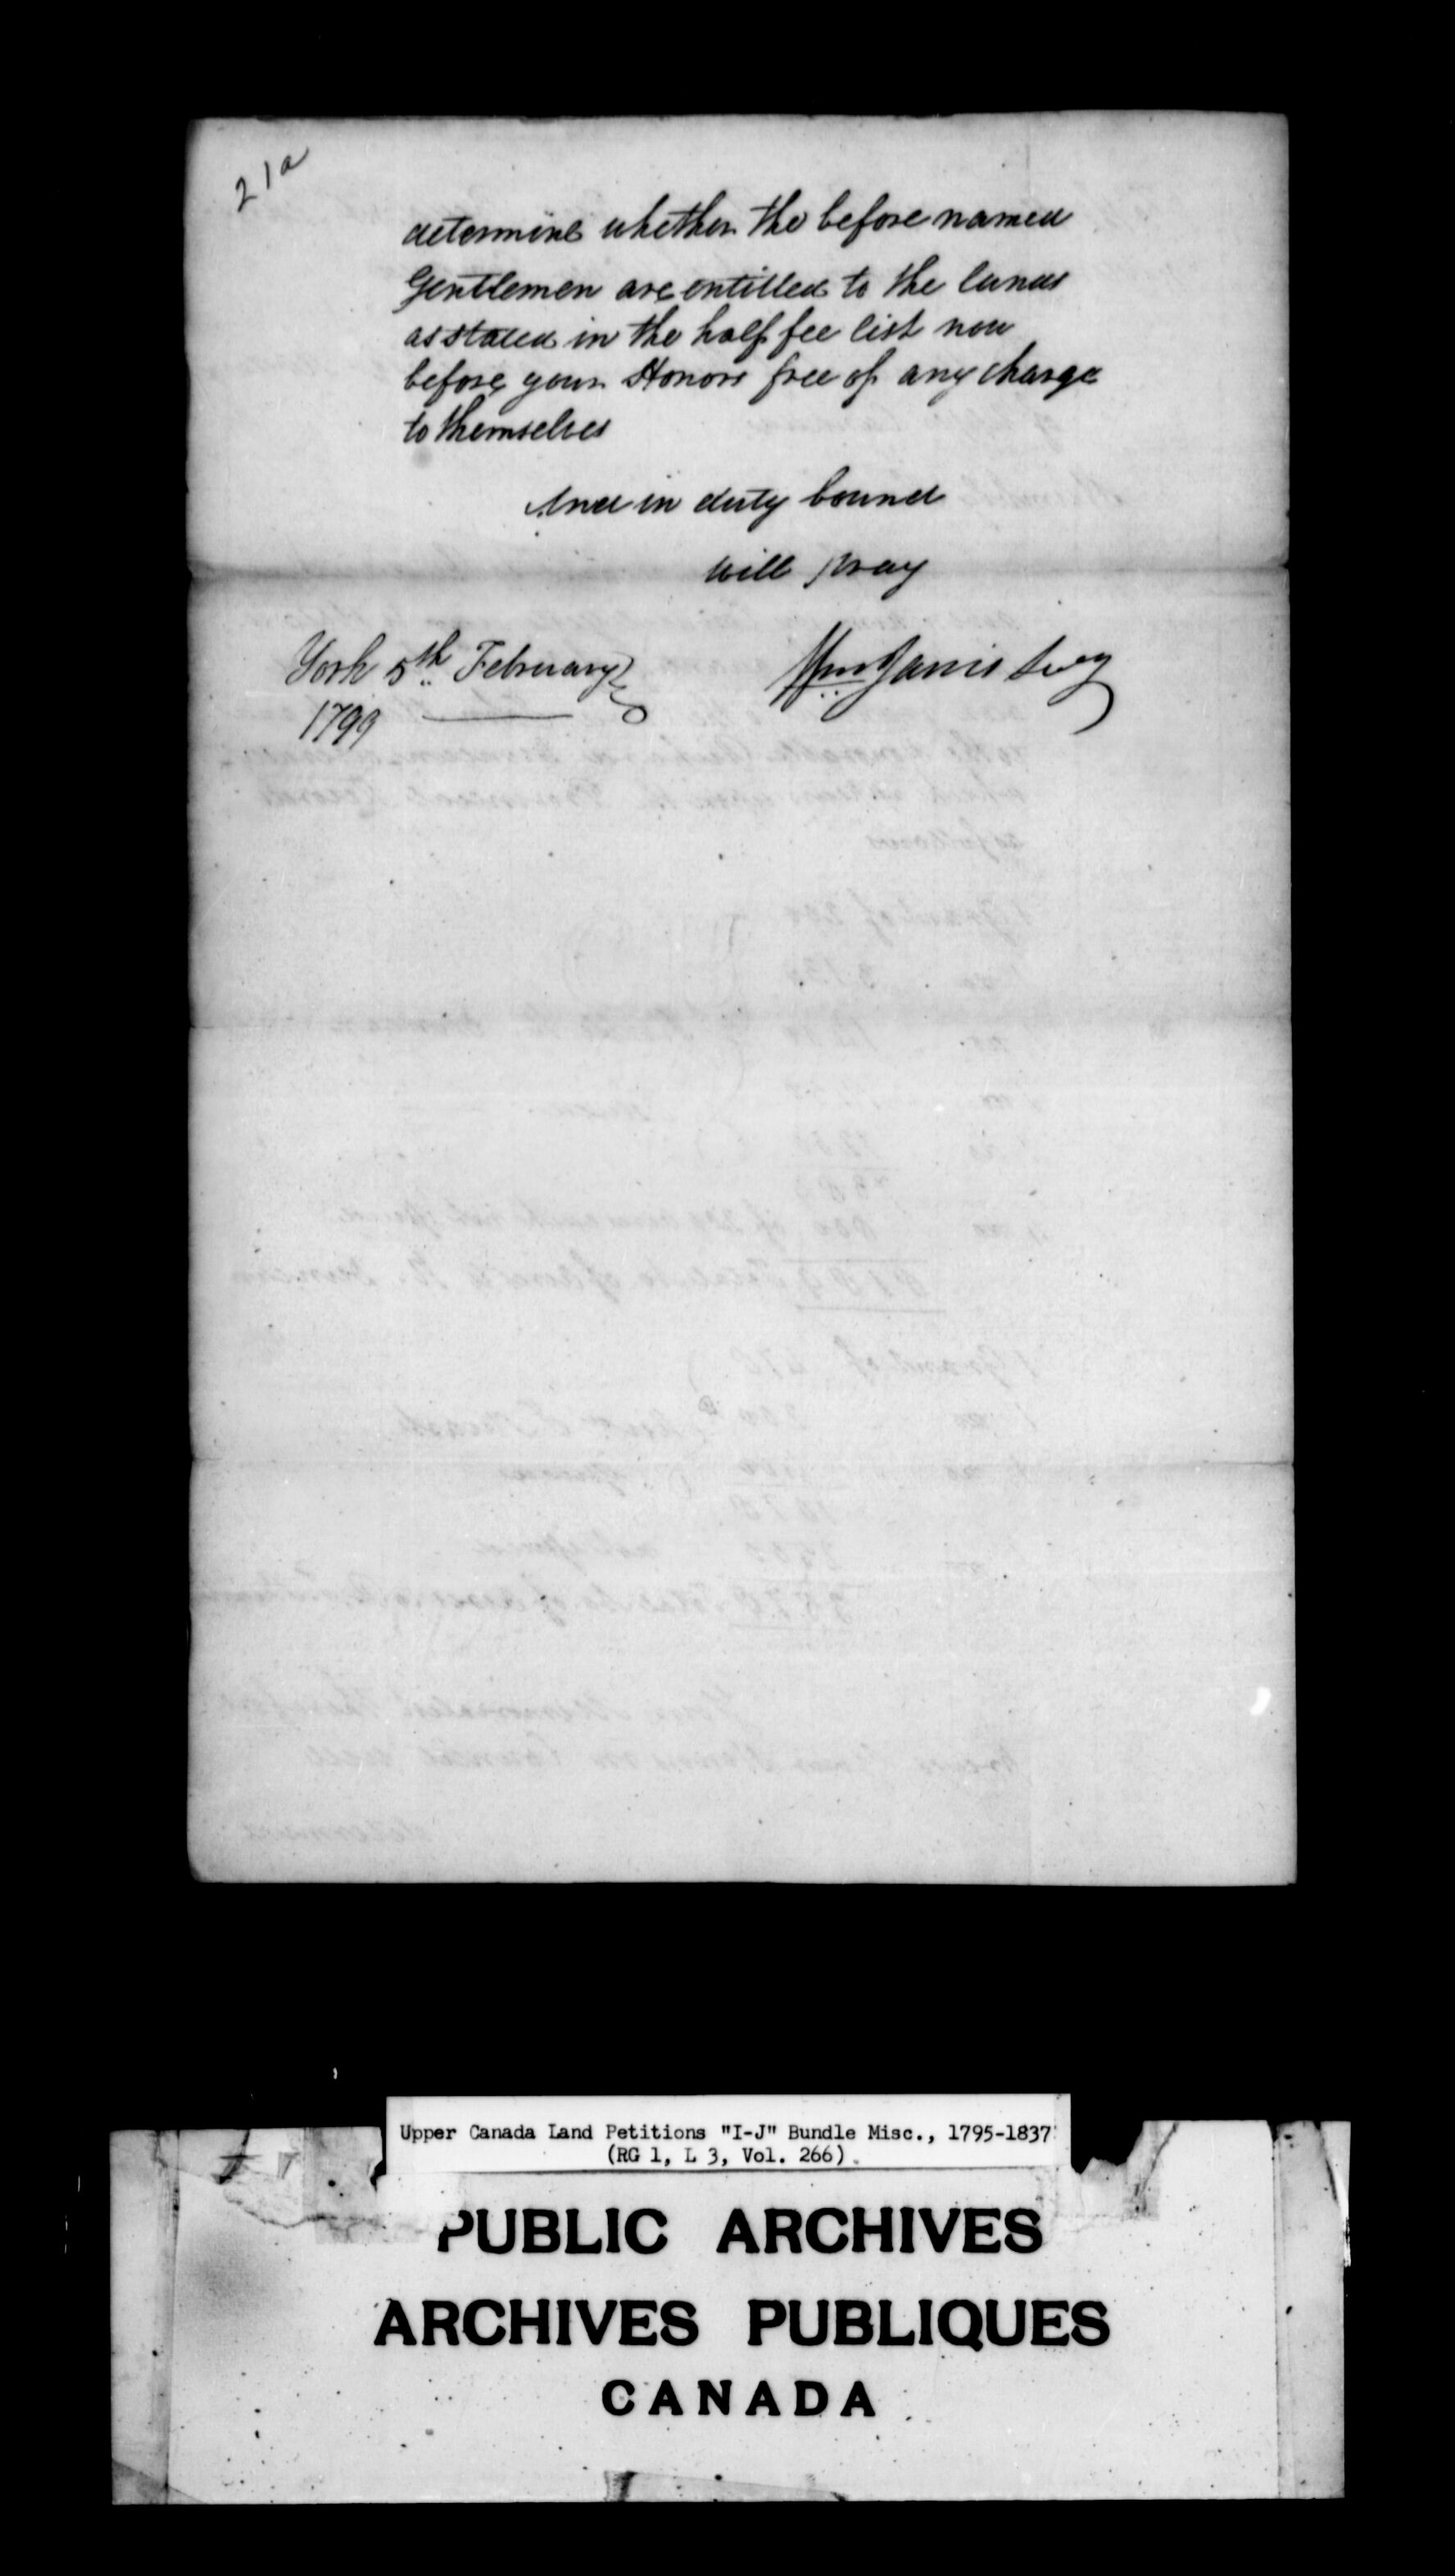 21a
determine whether the before named
Gentlemen are entitled to the lands
as stated in the half fee list now
before your Honors free of any charge
to themselves
And in duty bound
will pray
York 5th February
1799
Wm Jarvis Secy
Upper Canada Land Petitions "I-J" Bundle Misc., 1795-1837
(RG 1, L 3, Vol. 266)
PUBLIC ARCHIVES
ARCHIVES PUBLIQUES
CANADA